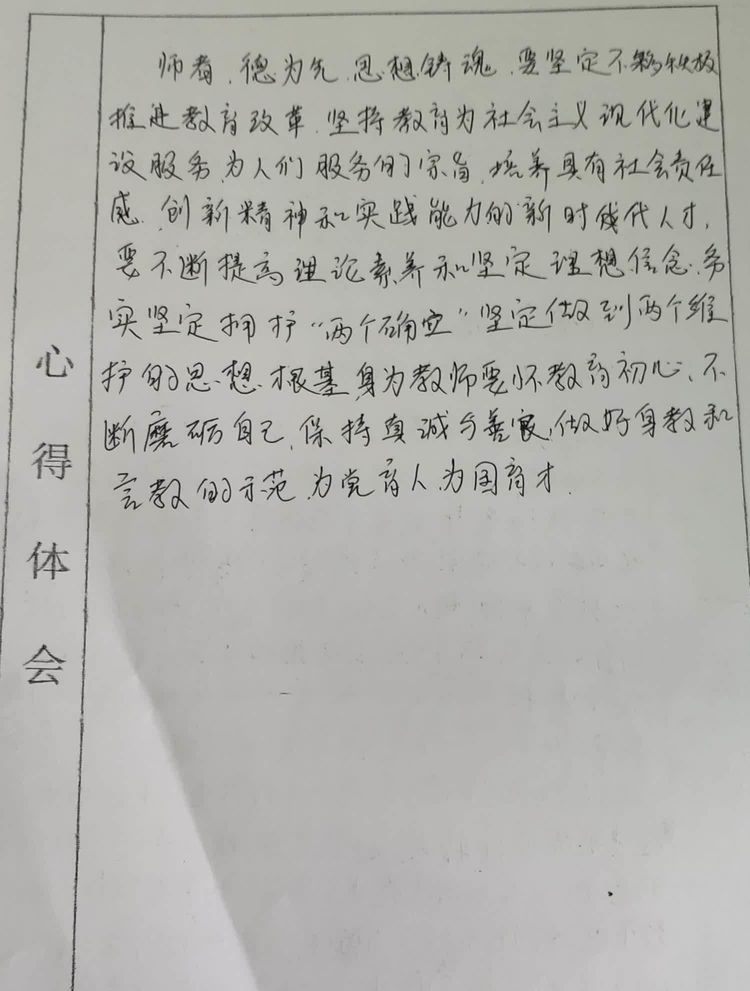 心得体会
师者、德为先、思想铸魂，要坚定不移积极
推进教育改革、坚持教育为社会主义现代化建
设服务、为人们服务的宗旨、培养具有社会责任
感、创新精神和实践能力的新时代人才，
要不断提高理论素养和坚定理想信念、务
实坚定拥护“两个确立”坚定做到两个维
护的思想根基、身为教师要怀教育初心、不
断磨砺自己、保持真诚与善良，做好身教和
言教的示范、为党育人、为国育才.